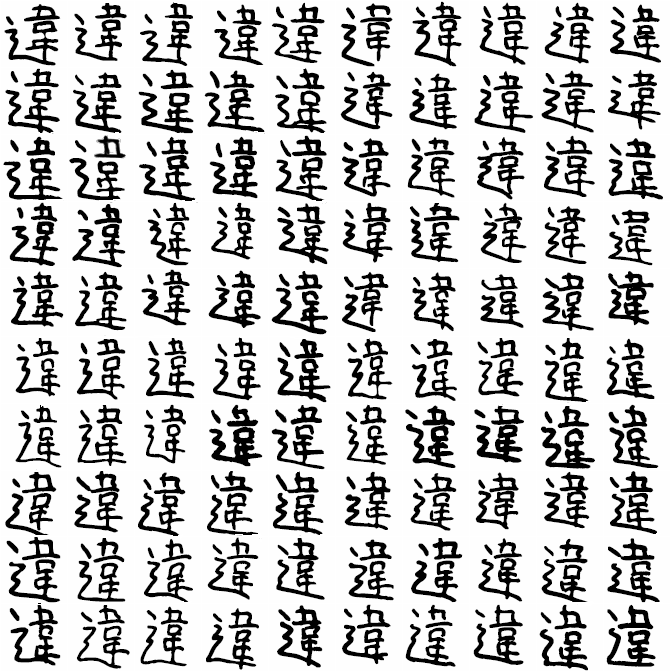 違違違違違違違違違違
違違違違違違違違違違
違違違違違違違違違違
違違違違違違違違違違
違違違違違違違違違違
違違違違違違違違違違
違違違違違違違違違違
違違違違違違違違違違
違違違違違違違違違違
違違違違違違違違違違